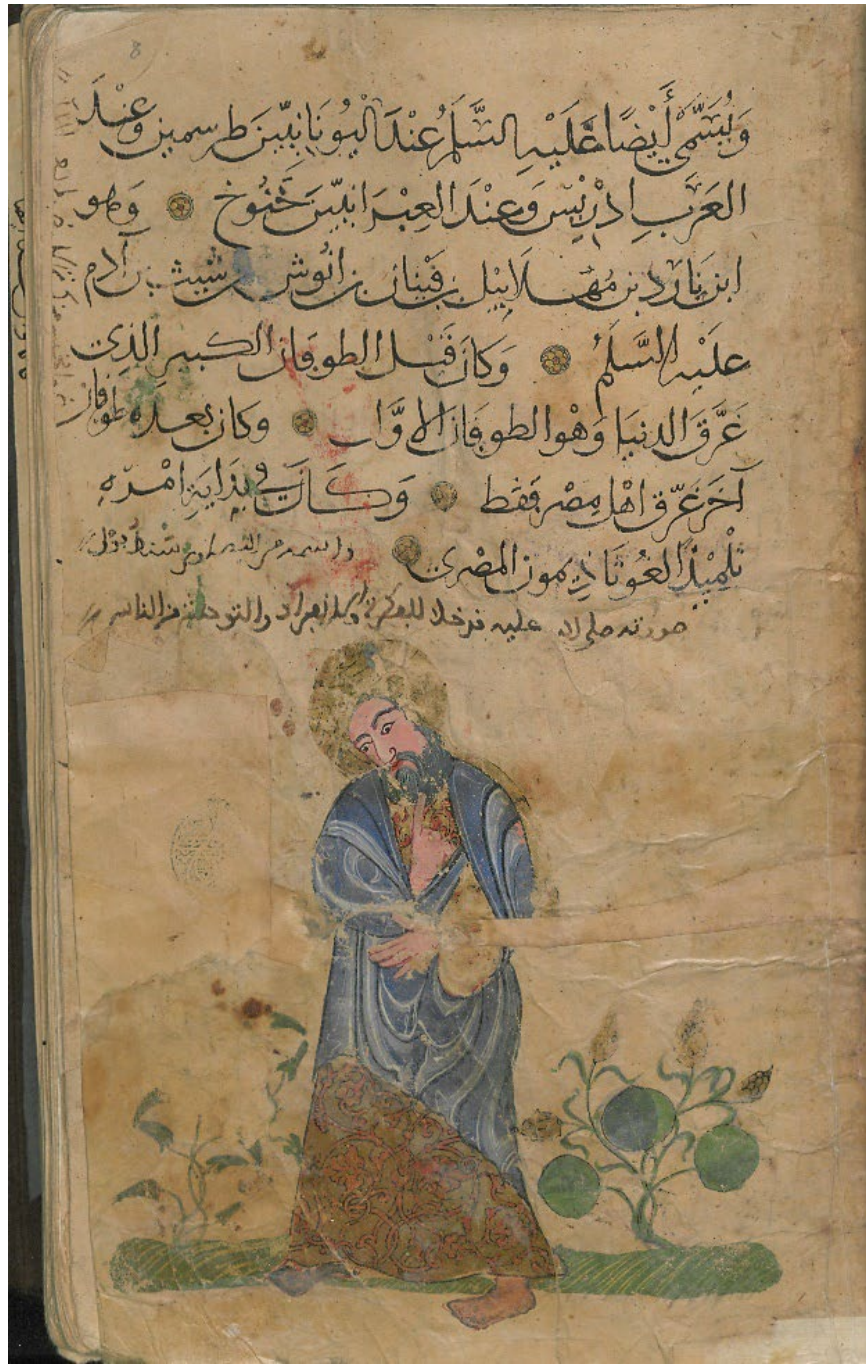 وَيُسَمَّى أَيْضًا عَلَيْهِ السَّلَمُ عِنْدَ اليُونَانِيِّينَ طرسمين وَعِنْدَ
العَرَبِ اِدْرِيسْ وَعِنْدَ العِبْرَانِيِّينَ خَنُوخ وَهو
ابن يَارد بن مُهْلَايِيْل بن قَيْنان بن انُوش بن شيث بن آدم
عَلَيْهِ السَّلَمُ وَكَانَ قَبْل الطوفان الكبير الذِي
غَرَّقَ الدنيا وَهْوَ الطوفان الاوَّل وكان بعده طوفان
آخر غرّق اهل مِصْر فقط وَكَانَ في بِدَايَةِ امْرِهِ
تلْمِيْذًا لغُوثَاذِيمون المصْري
صورته صلى الله عليه